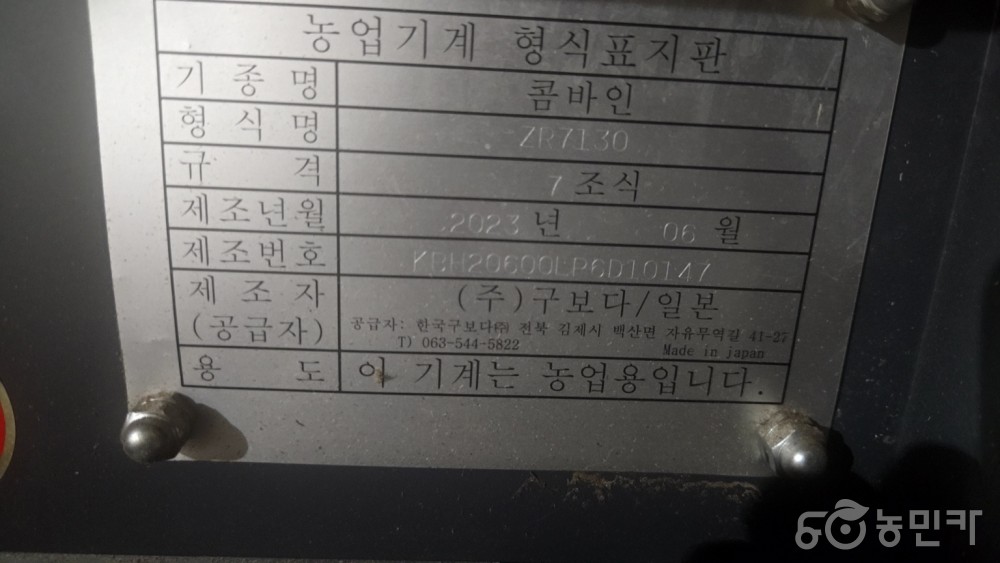 농업기계 형식표지판
기종명 콤바인
형식명 ZR7130
규격 7 조식
제조년월 2023 년 06 월
제조번호 KBH20600LP6D10147
제조자 (주)구보다/일본
(공급자) 공급자: 한국구보다㈜ 전북 김제시 백산면 자유무역길 41-27
T) 063-544-5822 Made in japan
용도 이 기계는 농업용입니다.
농민카